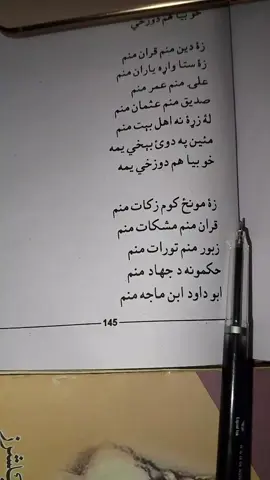 خو بيا هم دوزخي
زۀ دين منم قران منم
زۀ ستا واړه ياران منم
علی منم عمر منم
صديق منم عثمان منم
لۀ زړۀ نه اهل بېت منم
مئين په دوئ بېخي يمه
خو بيا هم دوزخي يمه
زۀ مونځ کوم زکات منم
قران منم مشکات منم
زبور منم تورات منم
حکمونه د جهاد منم
ابو داود ابن ماجه منم
145